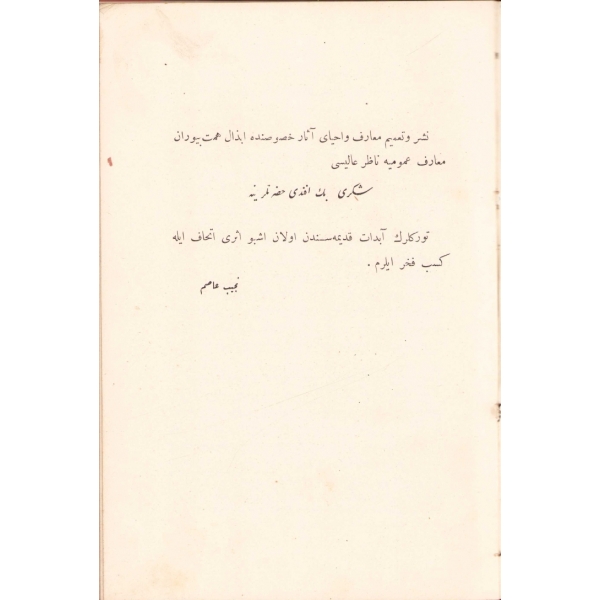 نشر و تعميم معارف و احيای آثار خصوصنده ابذال همت بيوران
معارف عموميه ناظر عاليسی
شكری بك افندی حضرتلرينه
توركلرك آبدات قديمه‌سندن اولان اشبو اثری اتحاف ايله
كسب فخر ايلرم .
نجيب عاصم